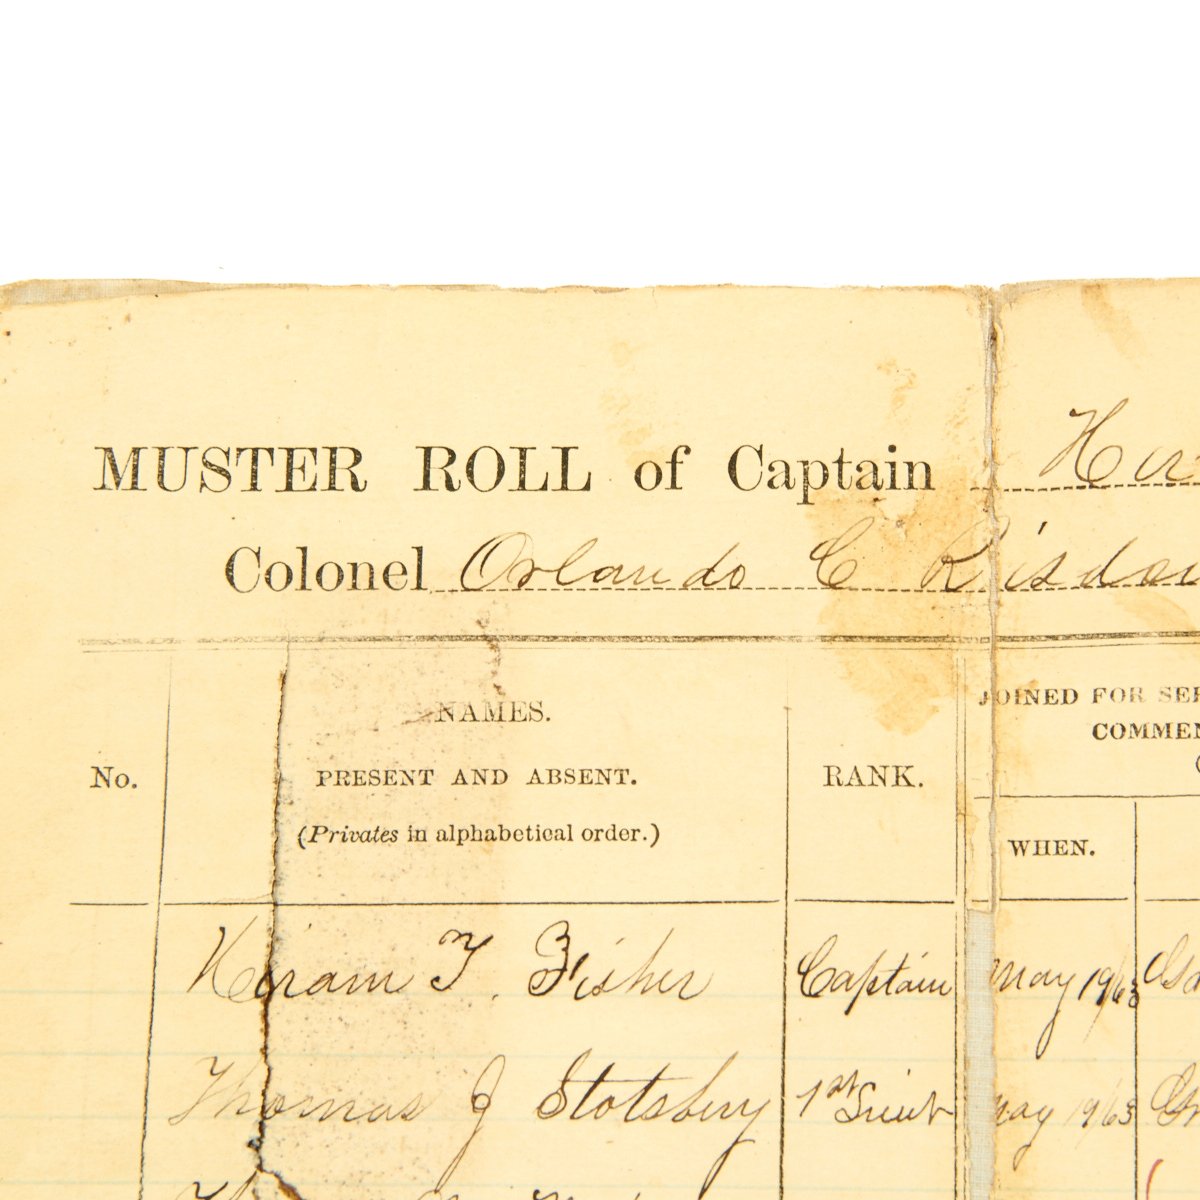 MUSTER ROLL of Captain Hir
Colonel Orlando C Risdon
No.
NAMES.
PRESENT AND ABSENT.
(Privates in alphabetical order.)
RANK.
JOINED FOR SER
COMMEN
WHEN.
Hiram T. Fisher Captain May 19/63
Thomas J Stotsbery 1st Lieut May 19/63